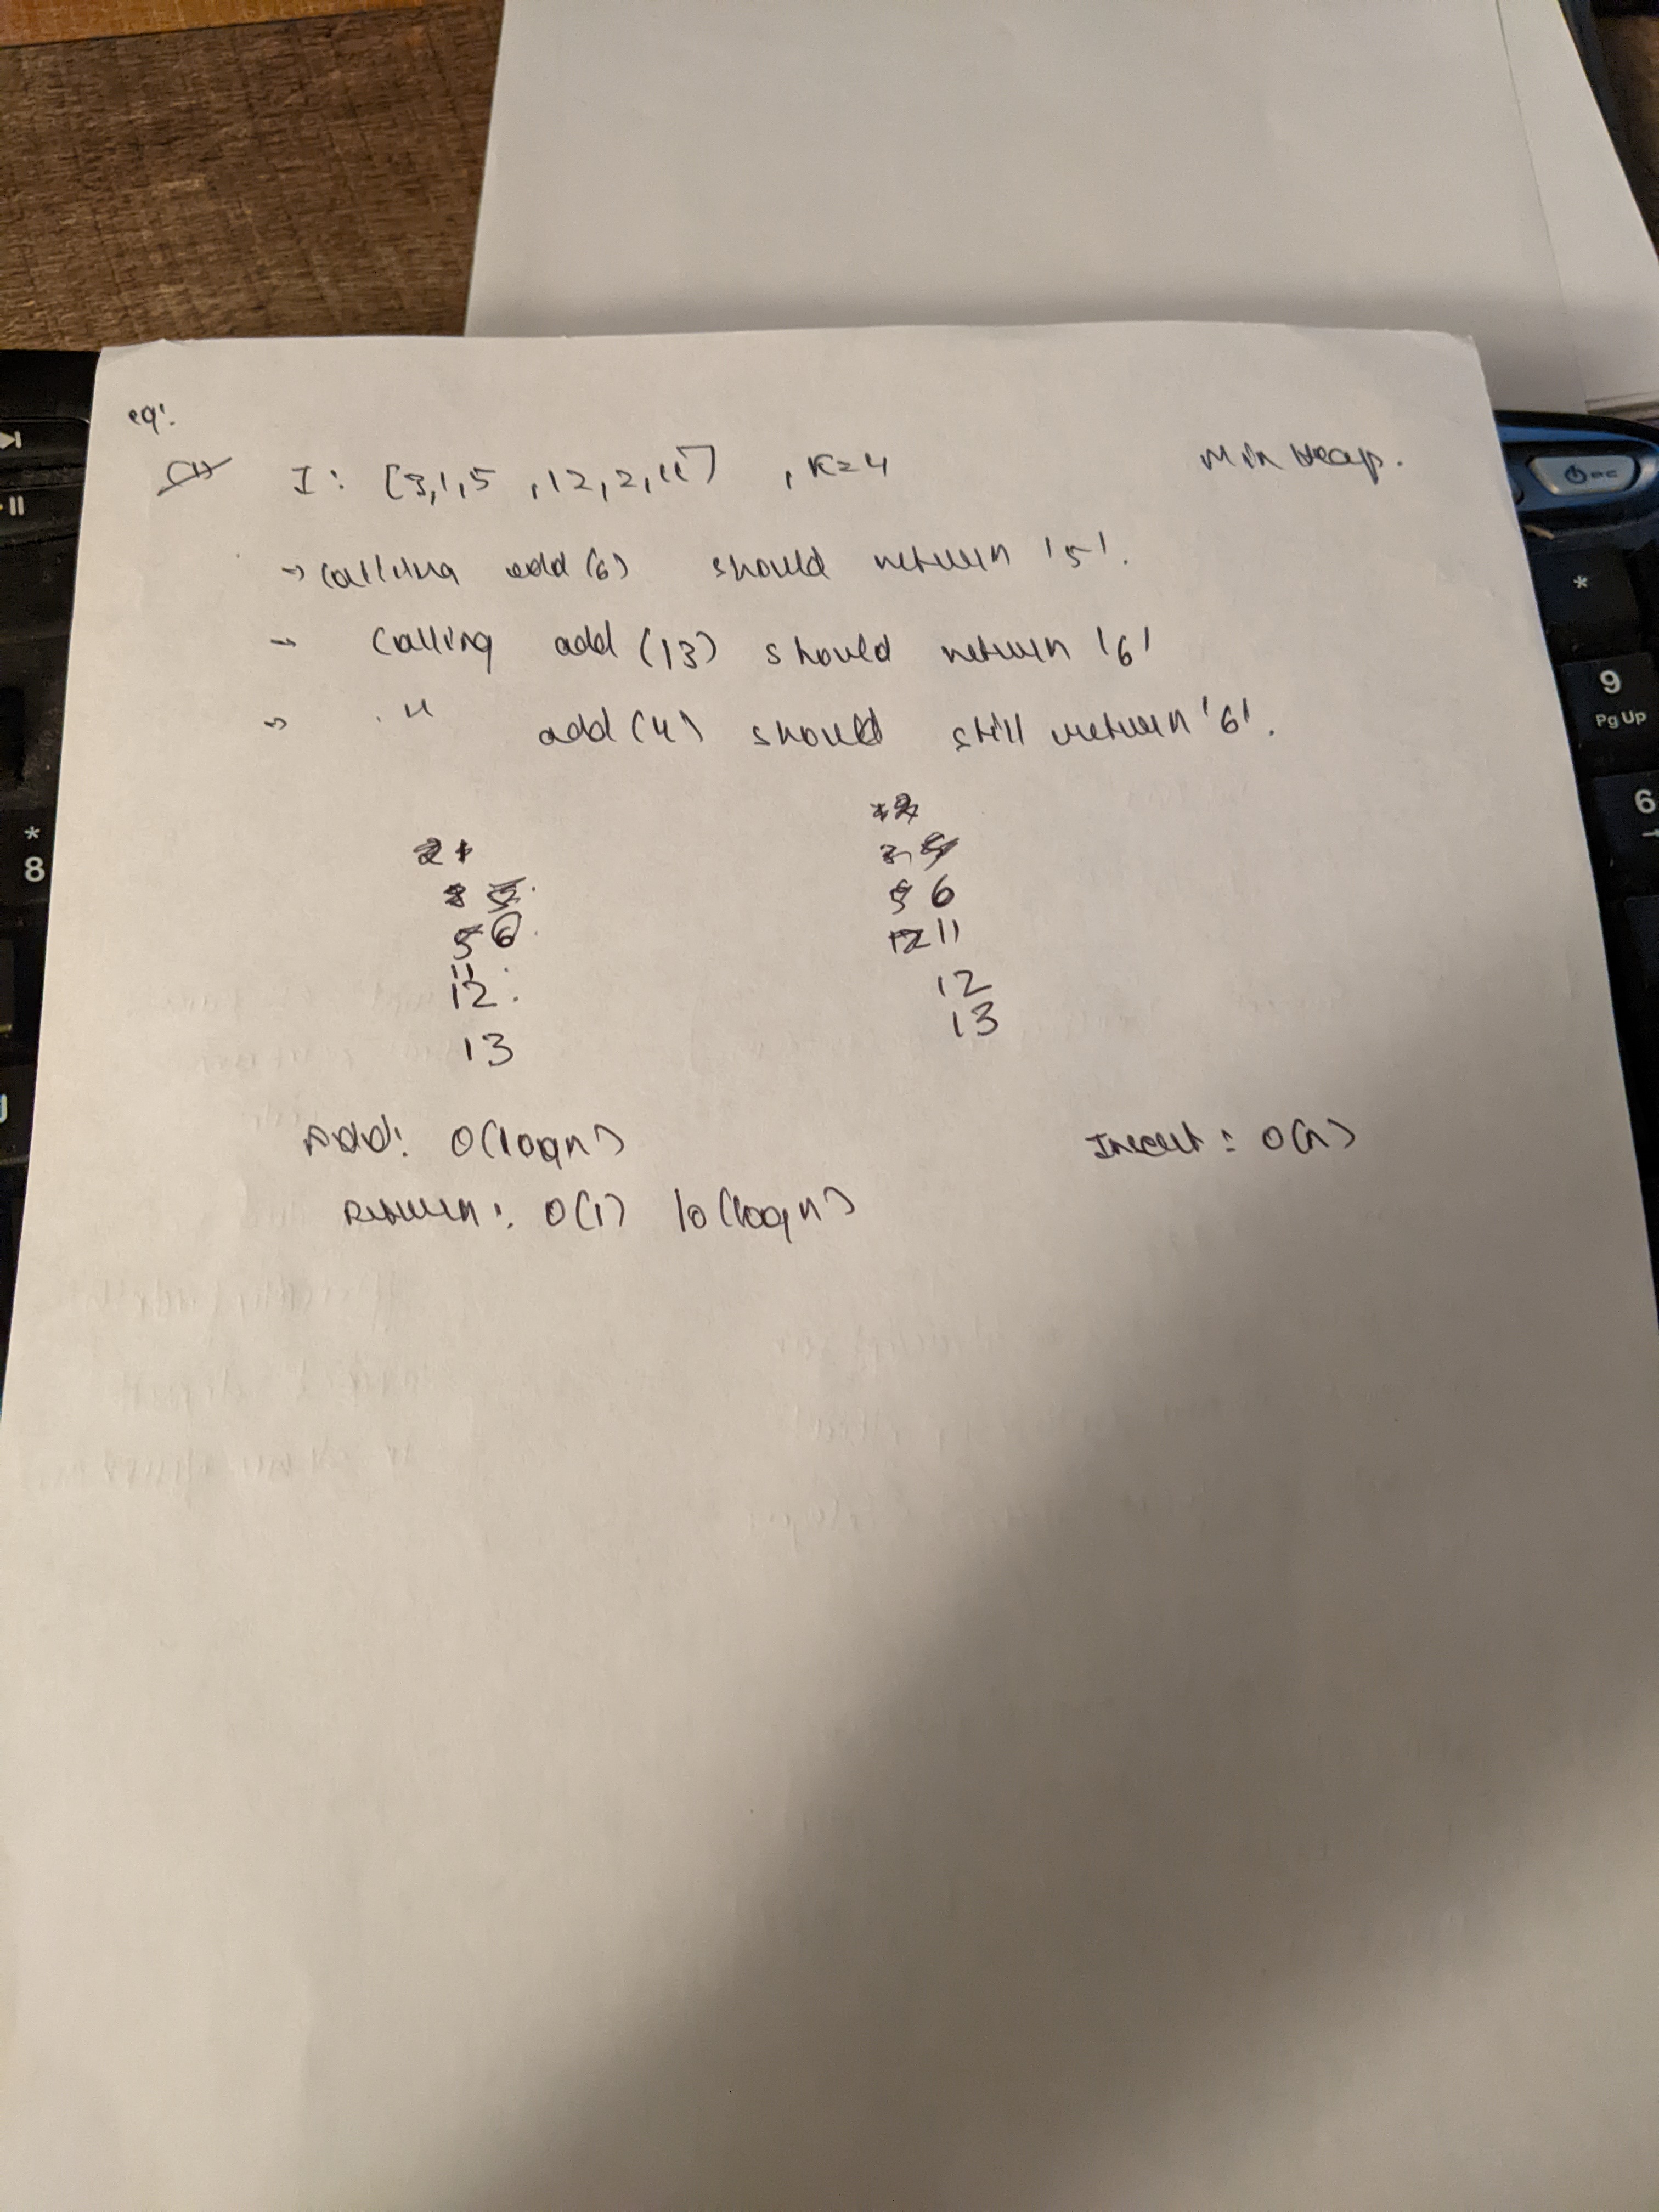 eg:
(1) I: [3,1,5 ,12,2,11] , K=4 Min Heap.
→ Calling add (6) should return '5'.
→ Calling add (13) should return '6'
→ " add (4) should still return '6'.
2 1
5
5 6
11
12
13
2
3
5 6
12 11
12
13
Add: O(logn) Insert : O(n)
Return: O(1) | O(logn)
*
8
*
9
Pg Up
6